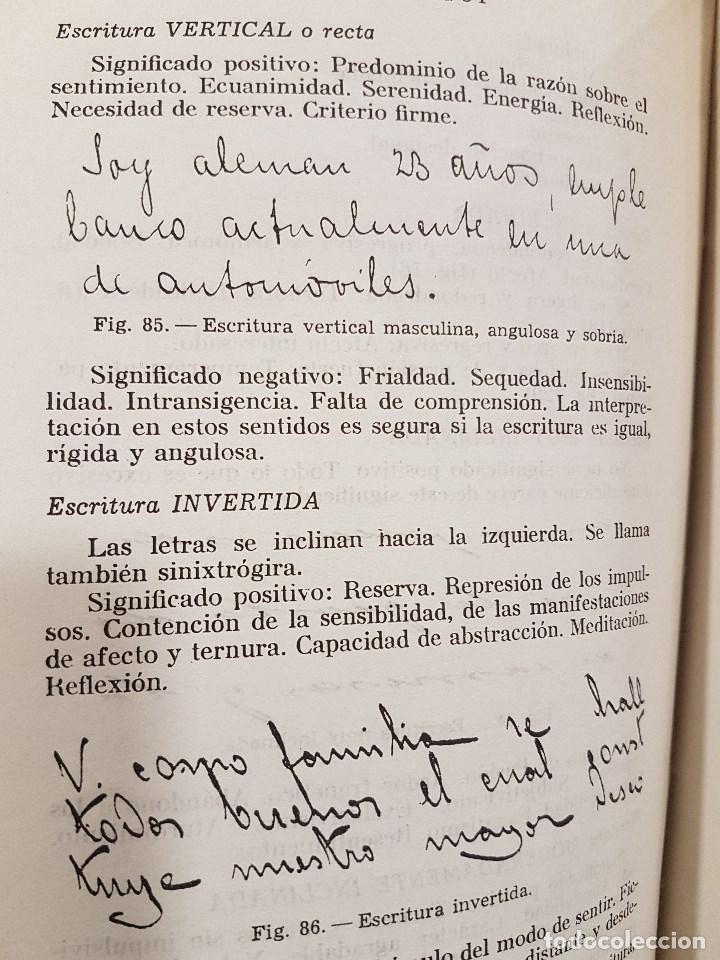 Escritura VERTICAL o recta
Significado positivo: Predominio de la razón sobre el
sentimiento. Ecuanimidad. Serenidad. Energía. Reflexión.
Necesidad de reserva. Criterio firme.
Soy aleman 23 años, emple
banco actualmente en una
de automóviles.
Fig. 85. — Escritura vertical masculina, angulosa y sobria.
Significado negativo: Frialdad. Sequedad. Insensibi-
lidad. Intransigencia. Falta de comprensión. La interpre-
tación en estos sentidos es segura si la escritura es igual,
rígida y angulosa.
Escritura INVERTIDA
Las letras se inclinan hacia la izquierda. Se llama
también sinixtrógira.
Significado positivo: Reserva. Represión de los impul-
sos. Contención de la sensibilidad, de las manifestaciones
de afecto y ternura. Capacidad de abstracción. Meditación.
Reflexión.
V. como familia se hall
todos buenos el cual const
tuye nuestro mayor deseo
Fig. 86. — Escritura invertida.
del modo de sentir. Fic-
distante y desde-
todocoleccion